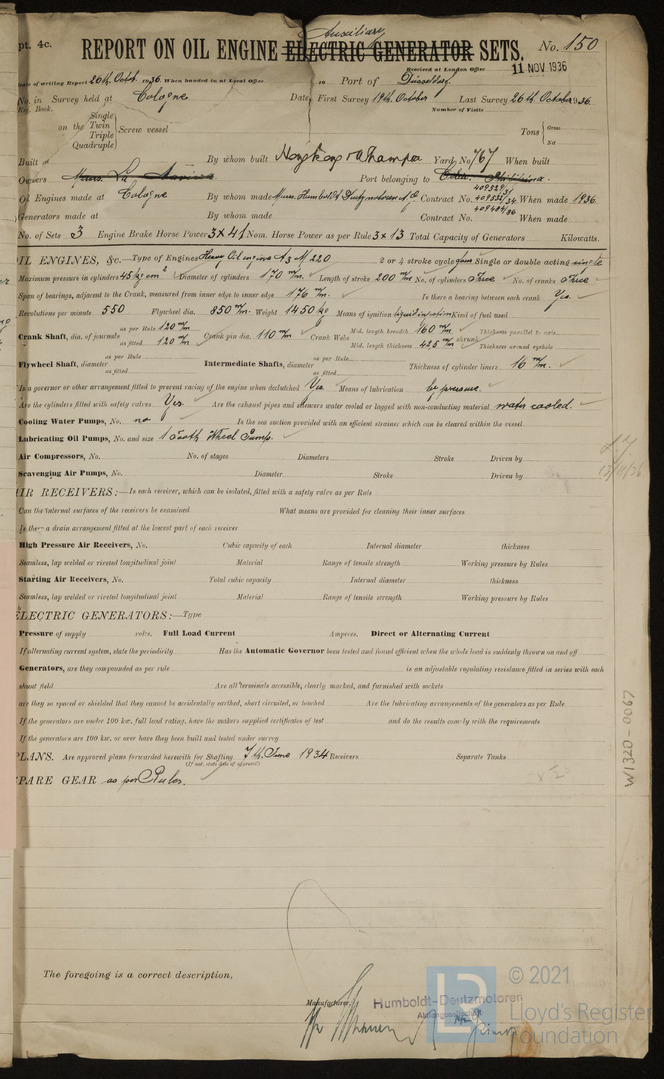 pt. 4c.
Auxiliary
REPORT ON OIL ENGINE ELECTRIC GENERATOR SETS. No. 150
Received at London Office 11 NOV 1936
Date of writing Report 26th Octob. 1936. When handed in at Local Office 19 Port of Düsseldorf.
No. in Survey held at Cologne Date, First Survey 19th October Last Survey 26th October 1936.
Reg. Book. Number of Visits
Single
on the Twin
Triple
Quadruple
Screw vessel
Tons Gross
Net
Built at By whom built Hongkong & Whampoa Yard No. 767 When built
Owners Port belonging to
Oil Engines made at Cologne By whom made Messrs. Humboldt-Deutzmotoren A.G. Contract No. When made 1936.
Generators made at By whom made Contract No. When made
No. of Sets 3 Engine Brake Horse Power 3x41 Nom. Horse Power as per Rule 3x13 Total Capacity of Generators Kilowatts.
OIL ENGINES, &c.—Type of Engines Heavy Oil engine A3M 220 2 or 4 stroke cycle four Single or double acting single
Maximum pressure in cylinders 45 kg cm² Diameter of cylinders 170 m/m. Length of stroke 200 m/m No. of cylinders three No. of cranks three
Span of bearings, adjacent to the Crank, measured from inner edge to inner edge 176 m/m. Is there a bearing between each crank Yes.
Revolutions per minute 550 Flywheel dia. 850 m/m. Weight 1450 kg Means of ignition Kind of fuel used
Crank Shaft, dia. of journals as per Rule 120 m/m Crank pin dia. 110 m/m Crank Webs Mid. length breadth 160 m/m Thickness parallel to axis
as fitted 120 m/m Mid. length thickness 42.5 m/m shrunk Thickness around eyehole
Flywheel Shaft, diameter as per Rule Intermediate Shafts, diameter as per Rule Thickness of cylinder liners 16 m/m.
as fitted as fitted
Is a governor or other arrangement fitted to prevent racing of the engine when declutched Yes Means of lubrication by pressure.
Are the cylinders fitted with safety valves Yes Are the exhaust pipes and silencers water cooled or lagged with non-conducting material water cooled.
Cooling Water Pumps, No. no Is the sea suction provided with an efficient strainer which can be cleared within the vessel
Lubricating Oil Pumps, No. and size 1 Tooth Wheel Pump.
Air Compressors, No. No. of stages Diameters Stroke Driven by
Scavenging Air Pumps, No. Diameter Stroke Driven by
AIR RECEIVERS:—Is each receiver, which can be isolated, fitted with a safety valve as per Rule
Can the internal surfaces of the receivers be examined What means are provided for cleaning their inner surfaces
Is there a drain arrangement fitted at the lowest part of each receiver
High Pressure Air Receivers, No. Cubic capacity of each Internal diameter thickness
Seamless, lap welded or riveted longitudinal joint Material Range of tensile strength Working pressure by Rules
Starting Air Receivers, No. Total cubic capacity Internal diameter thickness
Seamless, lap welded or riveted longitudinal joint Material Range of tensile strength Working pressure by Rules
ELECTRIC GENERATORS:—Type
Pressure of supply volts. Full Load Current Amperes. Direct or Alternating Current
If alternating current system, state the periodicity Has the Automatic Governor been tested and found efficient when the whole load is suddenly thrown on and off
Generators, are they compounded as per rule is an adjustable regulating resistance fitted in series with each
shunt field Are all terminals accessible, clearly marked, and furnished with sockets
are they so spaced or shielded that they cannot be accidentally earthed, short circuited, or touched Are the lubricating arrangements of the generators as per Rule
If the generators are under 100 kw. full load rating, have the makers supplied certificates of test and do the results comply with the requirements
If the generators are 100 kw. or over have they been built and tested under survey
PLANS. Are approved plans forwarded herewith for Shafting 7th June 1934 Receivers Separate Tanks
(If not, state date of approval)
SPARE GEAR as per Rules.
W1320-0067
The foregoing is a correct description,
Manufacturer.
Humboldt-Deutzmotoren
Aktiengesellschaft
© 2021
Lloyd's Register
Foundation